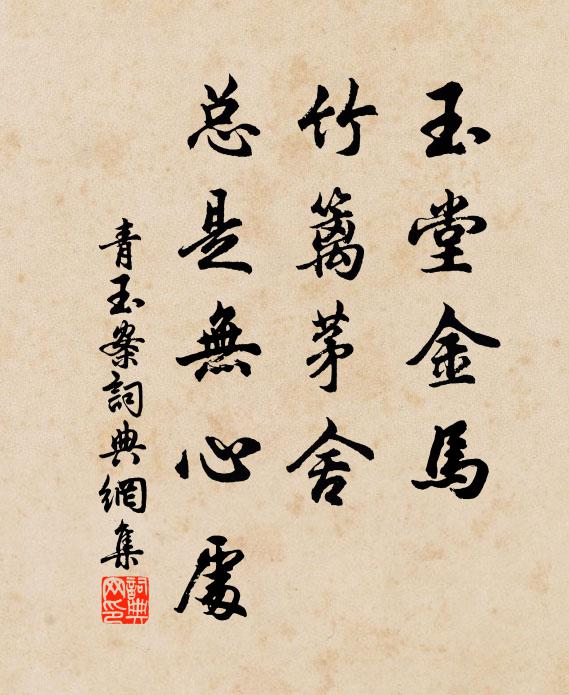 玉堂金馬
竹篱茅舍
总是無心處
青玉案詞典網集
詞典網印